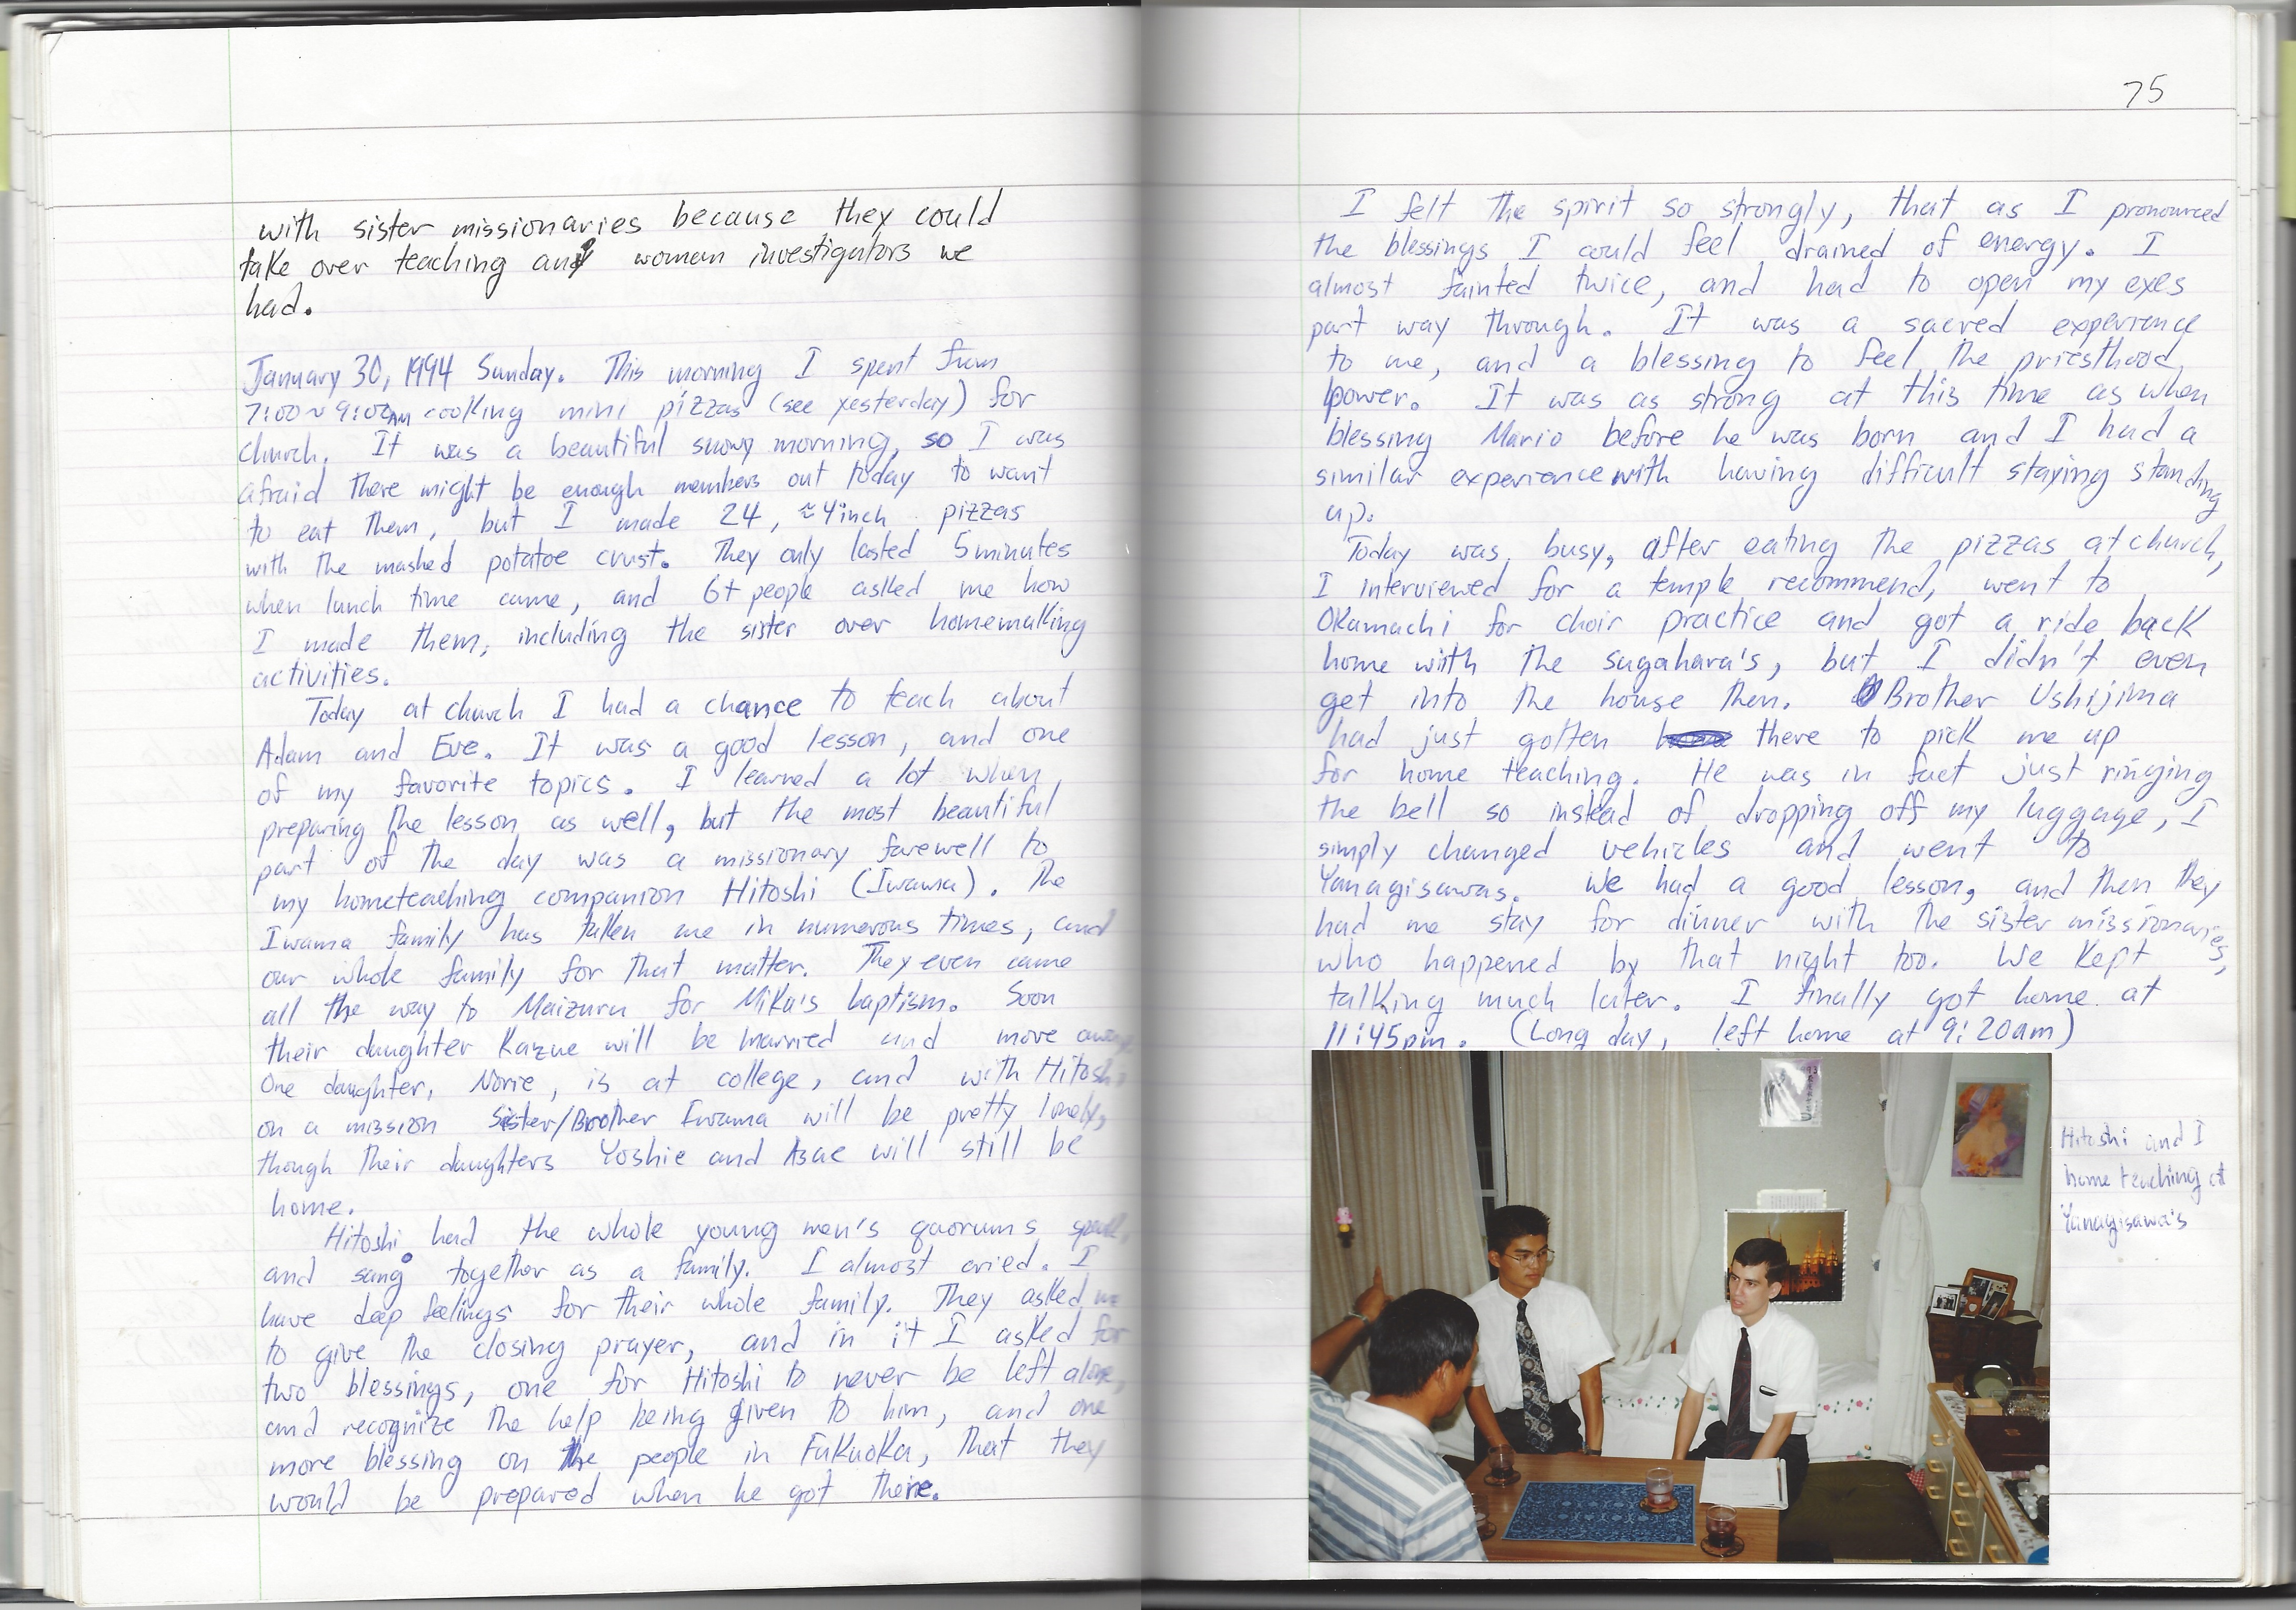 with sister missionaries because they could
take over teaching any woman investigators we
had.
January 30, 1994 Sunday. This morning I spent from
7:00~9:00AM cooking mini pizzas (see yesterday) for
church. It was a beautiful snowy morning, so I was
afraid there might be enough members out today to want
to eat them, but I made 24, ≈4inch pizzas
with the mashed potatoe crust. They only lasted 5 minutes
when lunch time came, and 6+ people asked me how
I made them, including the sister over homemaking
activities.
Today at church I had a chance to teach about
Adam and Eve. It was a good lesson, and one
of my favorite topics. I learned a lot when
preparing the lesson as well, but the most beautiful
part of the day was a missionary farewell to
my hometeaching companion Hitoshi (Iwama). The
Iwama family has taken me in numerous times, and
our whole family for that matter. They even came
all the way to Maizuru for Mika's baptism. Soon
their daughter Kazue will be married and move away
One daughter, Norie, is at college, and with Hitoshi
on a mission Sister/Brother Iwama will be pretty lonely,
though their daughters Yoshie and Asae will still be
home.
Hitoshi had the whole young men's quorums speak,
and sang together as a family. I almost cried. I
have deep feelings for their whole family. They asked me
to give the closing prayer, and in it I asked for
two blessings, one for Hitoshi to never be left alone,
and recognize the help being given to him, and one
more blessing on the people in Fukuoka, that they
would be prepared when he got there.
75
I felt the spirit so strongly, that as I pronounced
the blessings I could feel drained of energy. I
almost fainted twice, and had to open my eyes
part way through. It was a sacred experience
to me, and a blessing to feel the priesthood
power. It was as strong at this time as when
blessing Mario before he was born and I had a
similar experience with having difficult staying standing
up.
Today was busy, after eating the pizzas at church,
I interviewed for a temple recommend, went to
Okamachi for choir practice and got a ride back
home with the sugahara's, but I didn't even
get into the house then. Brother Ushijima
had just gotten there to pick me up
for home teaching. He was in fact just ringing
the bell so instead of dropping off my luggage, I
simply changed vehicles and went to
Yanagisawas. We had a good lesson, and then they
had me stay for dinner with the sister missionaries,
who happened by that night too. We kept
talking much later. I finally got home at
11:45pm. (Long day, left home at 9:20am)
Hitoshi and I
home teaching at
Yanagisawa's